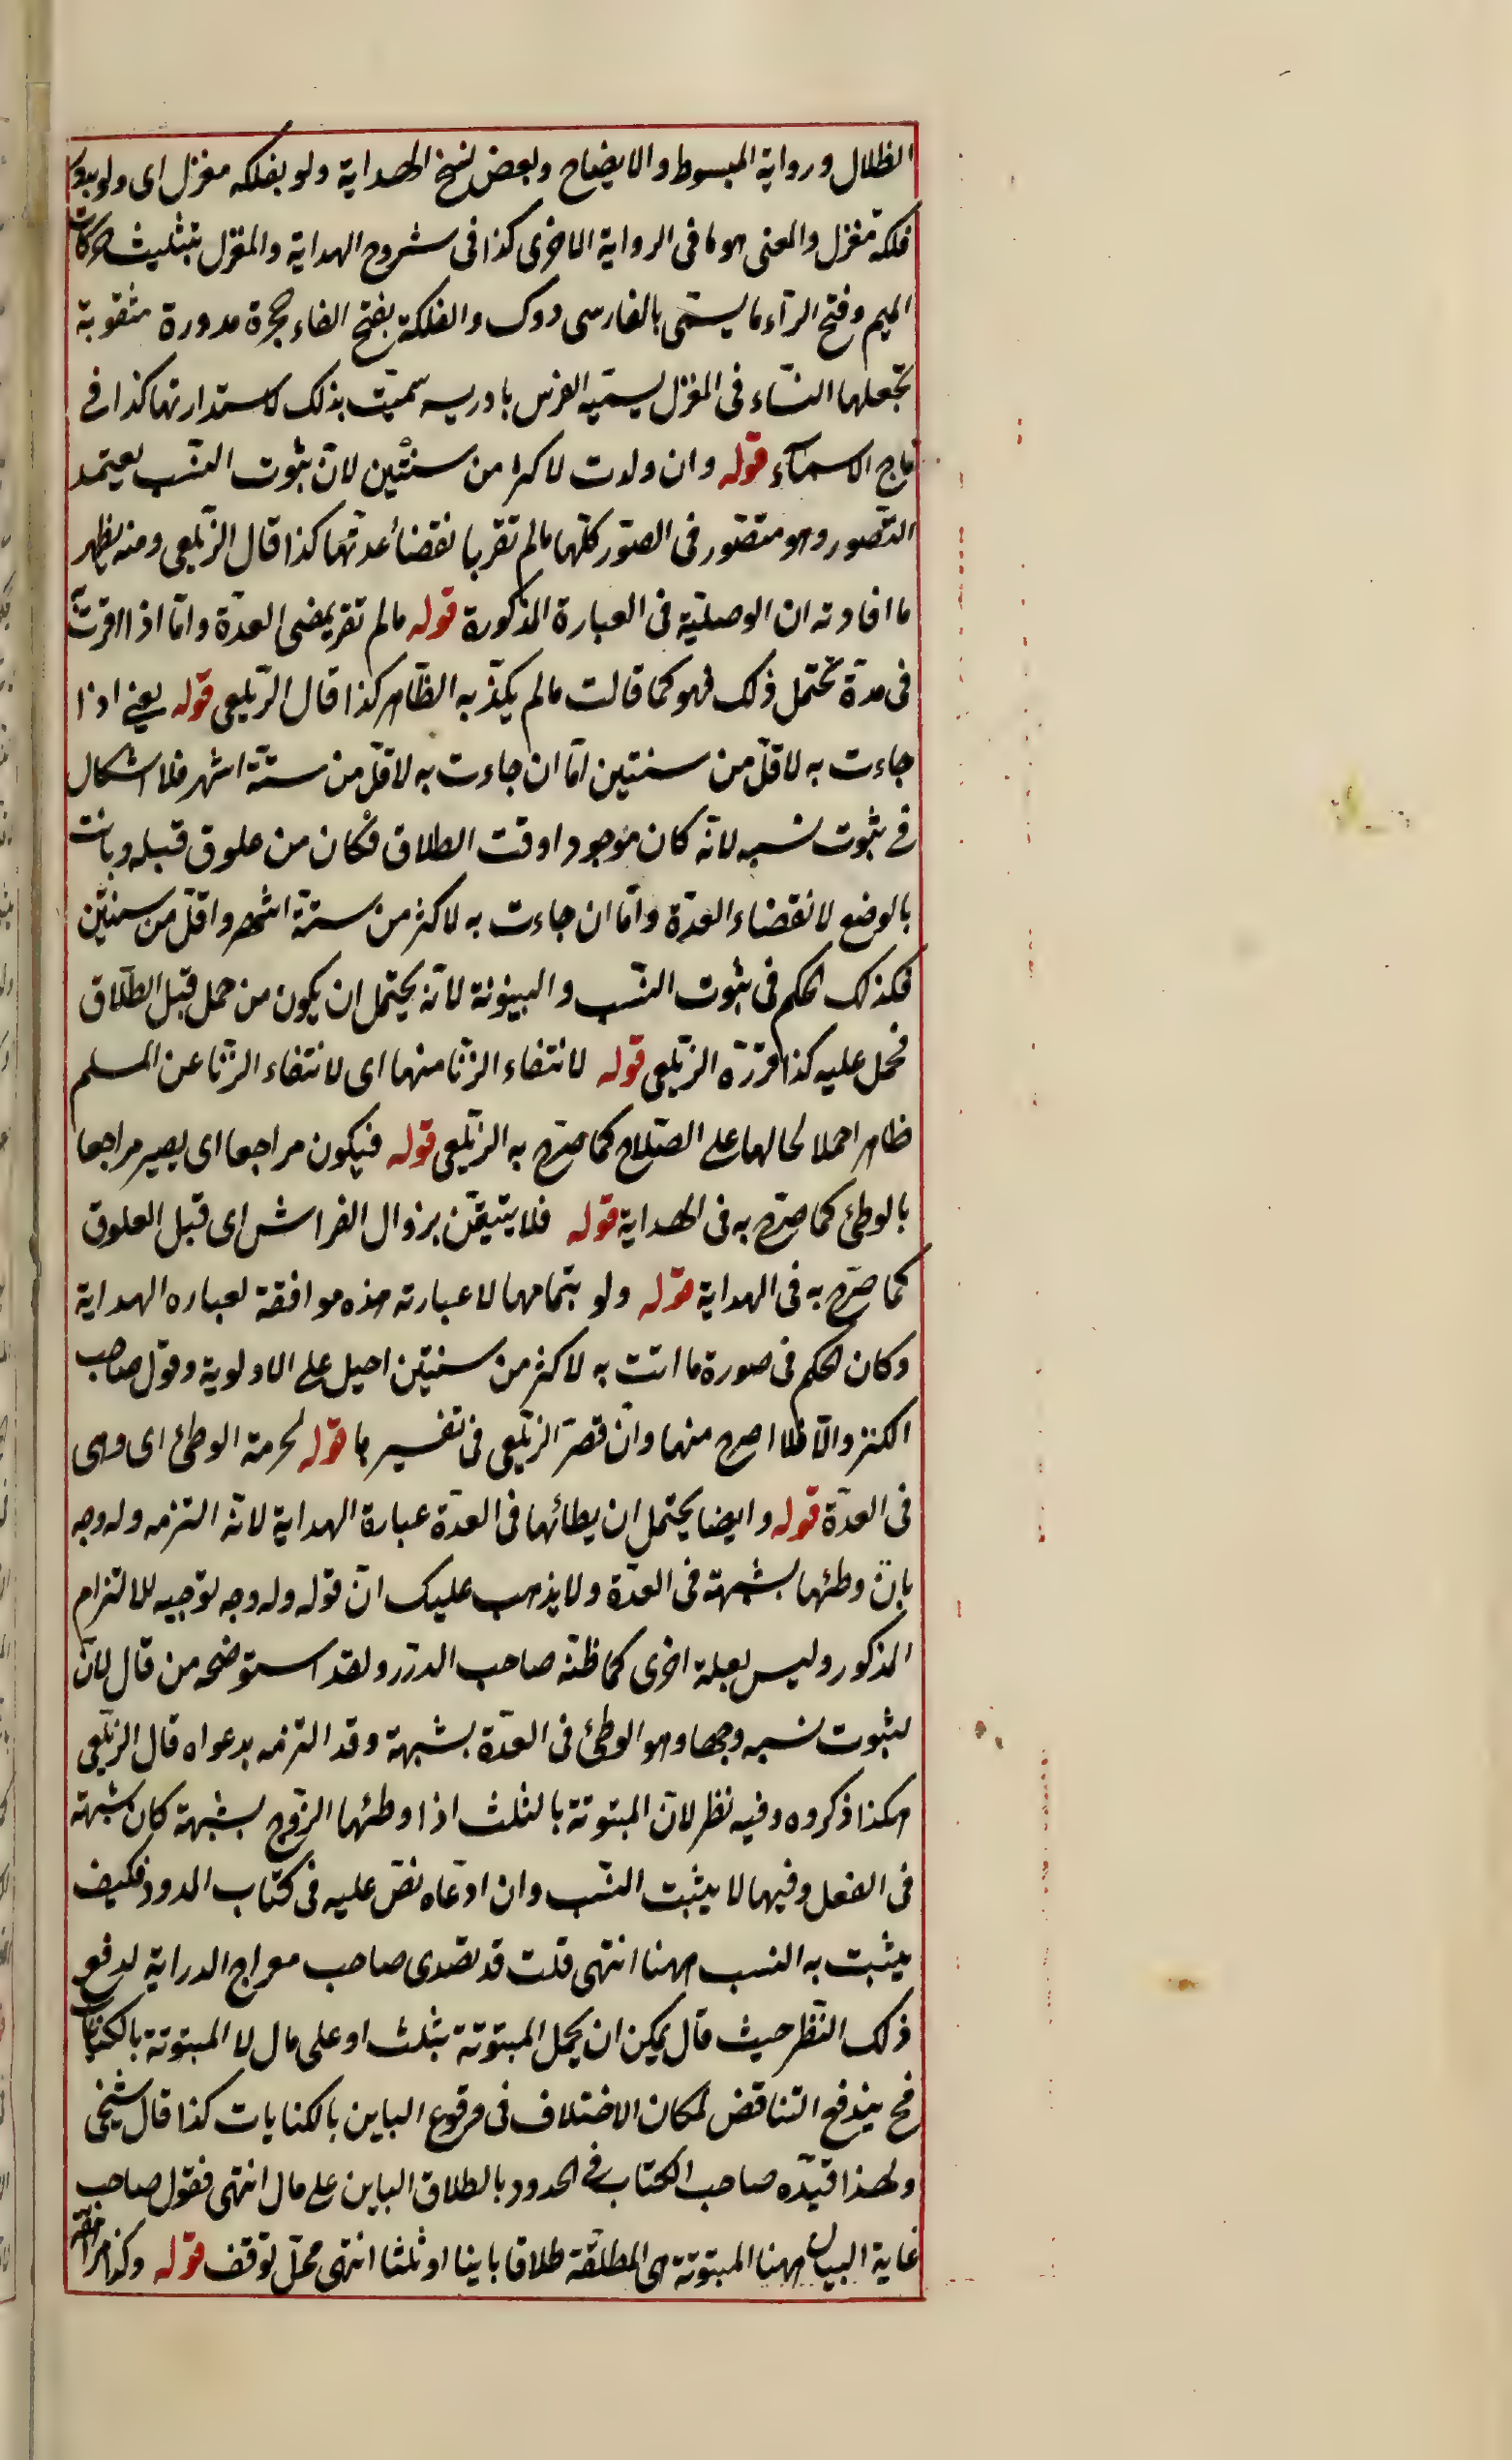 الظلال ورواية المبسوط والايضاح وبعض نسخ الهداية ولو بفلكه مغزل اى ولو بدور
فلكة مغزل والمعنى هو ما فى الرواية الاخرى كذا فى شروح الهداية والمغزل بتثليث حركات
الميم وفتح الزاء ما يسمّى بالفارسى دوك والفلكة بفتح الفاء حجرة مدورة مثقوبة
تجعلها النساء فى المغزل يسميه الفرس بادريسه سميت بذلك لاستدارتها كذا فى
تاج الاسماء قوله وان ولدت لاكثر من سنتين لانّ ثبوت النسب يعتمد
التصور وهو متصور فى الصور كلّها مالم تقر بانقضاء عدتها كذا قال الزيلعى ومنه يظهر
ما افادته ان الوصلية فى العبارة المذكورة قوله مالم تقر بمضى العدة وامّا اذا اقرت
فى مدة تحتمل ذلك فهو كما قالت مالم يكذّبه الظاهر كذا قال الزيلعى قوله يعنى اذا
جاءت به لاقلّ من سنتين امّا ان جاءت به لاقلّ من ستّة اشهر فلا اشكال
فى ثبوت نسبه لانّه كان موجودا وقت الطلاق فكان من علوق قبله وبانت
بالوضع لانقضاء العدّة وامّا ان جاءت به لاكثر من ستة اشهر واقلّ من سنتين
فكذلك الحكم فى ثبوت النسب والبينونة لانّه يحتمل ان يكون من حمل قبل الطلاق
فحمل عليه كذا قرره الزيلعى قوله لانتفاء الزنا منهما اى لانتفاء الزّنا عن المسلم
ظاهر احملا لحالهما على الصّلاح كما صرّح به الزيلعى قوله فيكون مراجعا اى يصير مراجعا
بالوطئ كما صرّح به فى الهداية قوله فلا يتيقّن بزوال الفراش اى قبل العلوق
كما صرّح به فى الهداية قوله ولو بتمامهما لا عبارته هذه موافقة لعباره الهداية
وكان الحكم فى صورة ما اتت به لاكثر من سنتين احيل على الاولوية وقول صاحب
الكنز والّا فلا اصرح منهما وانّ قصر الزيلعى فى تفسيرها قوله لحرمة الوطئ اى وهى
فى العدّة قوله وايضا يحتمل ان يطائها فى العدّة عبارة الهداية لانّه التزمه وله وجه
بانّ وطئها بشبهة فى العدّة ولا يذهب عليك انّ قوله وله وجه توجيه للالتزام
المذكور وليس بعلة اخرى كما ظنّه صاحب الدرر ولقد استوضحه من قال لانّ
لثبوت نسبه وجها وهو الوطئ فى العدّة بشبهة وقد التزمه بدعواه قال الزيلعى
هكذا ذكروه وفيه نظر لانّ المبتوتة بالثلث اذا وطئها الزوج بشبهة كان شبهة
فى الفعل وفيها لا يثبت النسب وان ادّعاه نصّ عليه فى كتاب الحدود فكيف
يثبت به النسب ههنا انتهى قلت قد تصدى صاحب معراج الدراية لدفع
ذلك النّظر حيث قال يمكن ان يحمل المبتوتة بثلث او على مال لا المبتوتة بالكنايات
فح يندفع التناقض لمكان الاختلاف فى وقوع الباين بالكنايات كذا قال شيخى
ولهذا قيّده صاحب الكتاب فى الحدود بالطلاق الباين على مال انتهى فقول صاحب
غاية البيان ههنا المبتوتة هى المطلقة طلاقا باينا او ثلثا انتهى محلّ توقف قوله وكذا